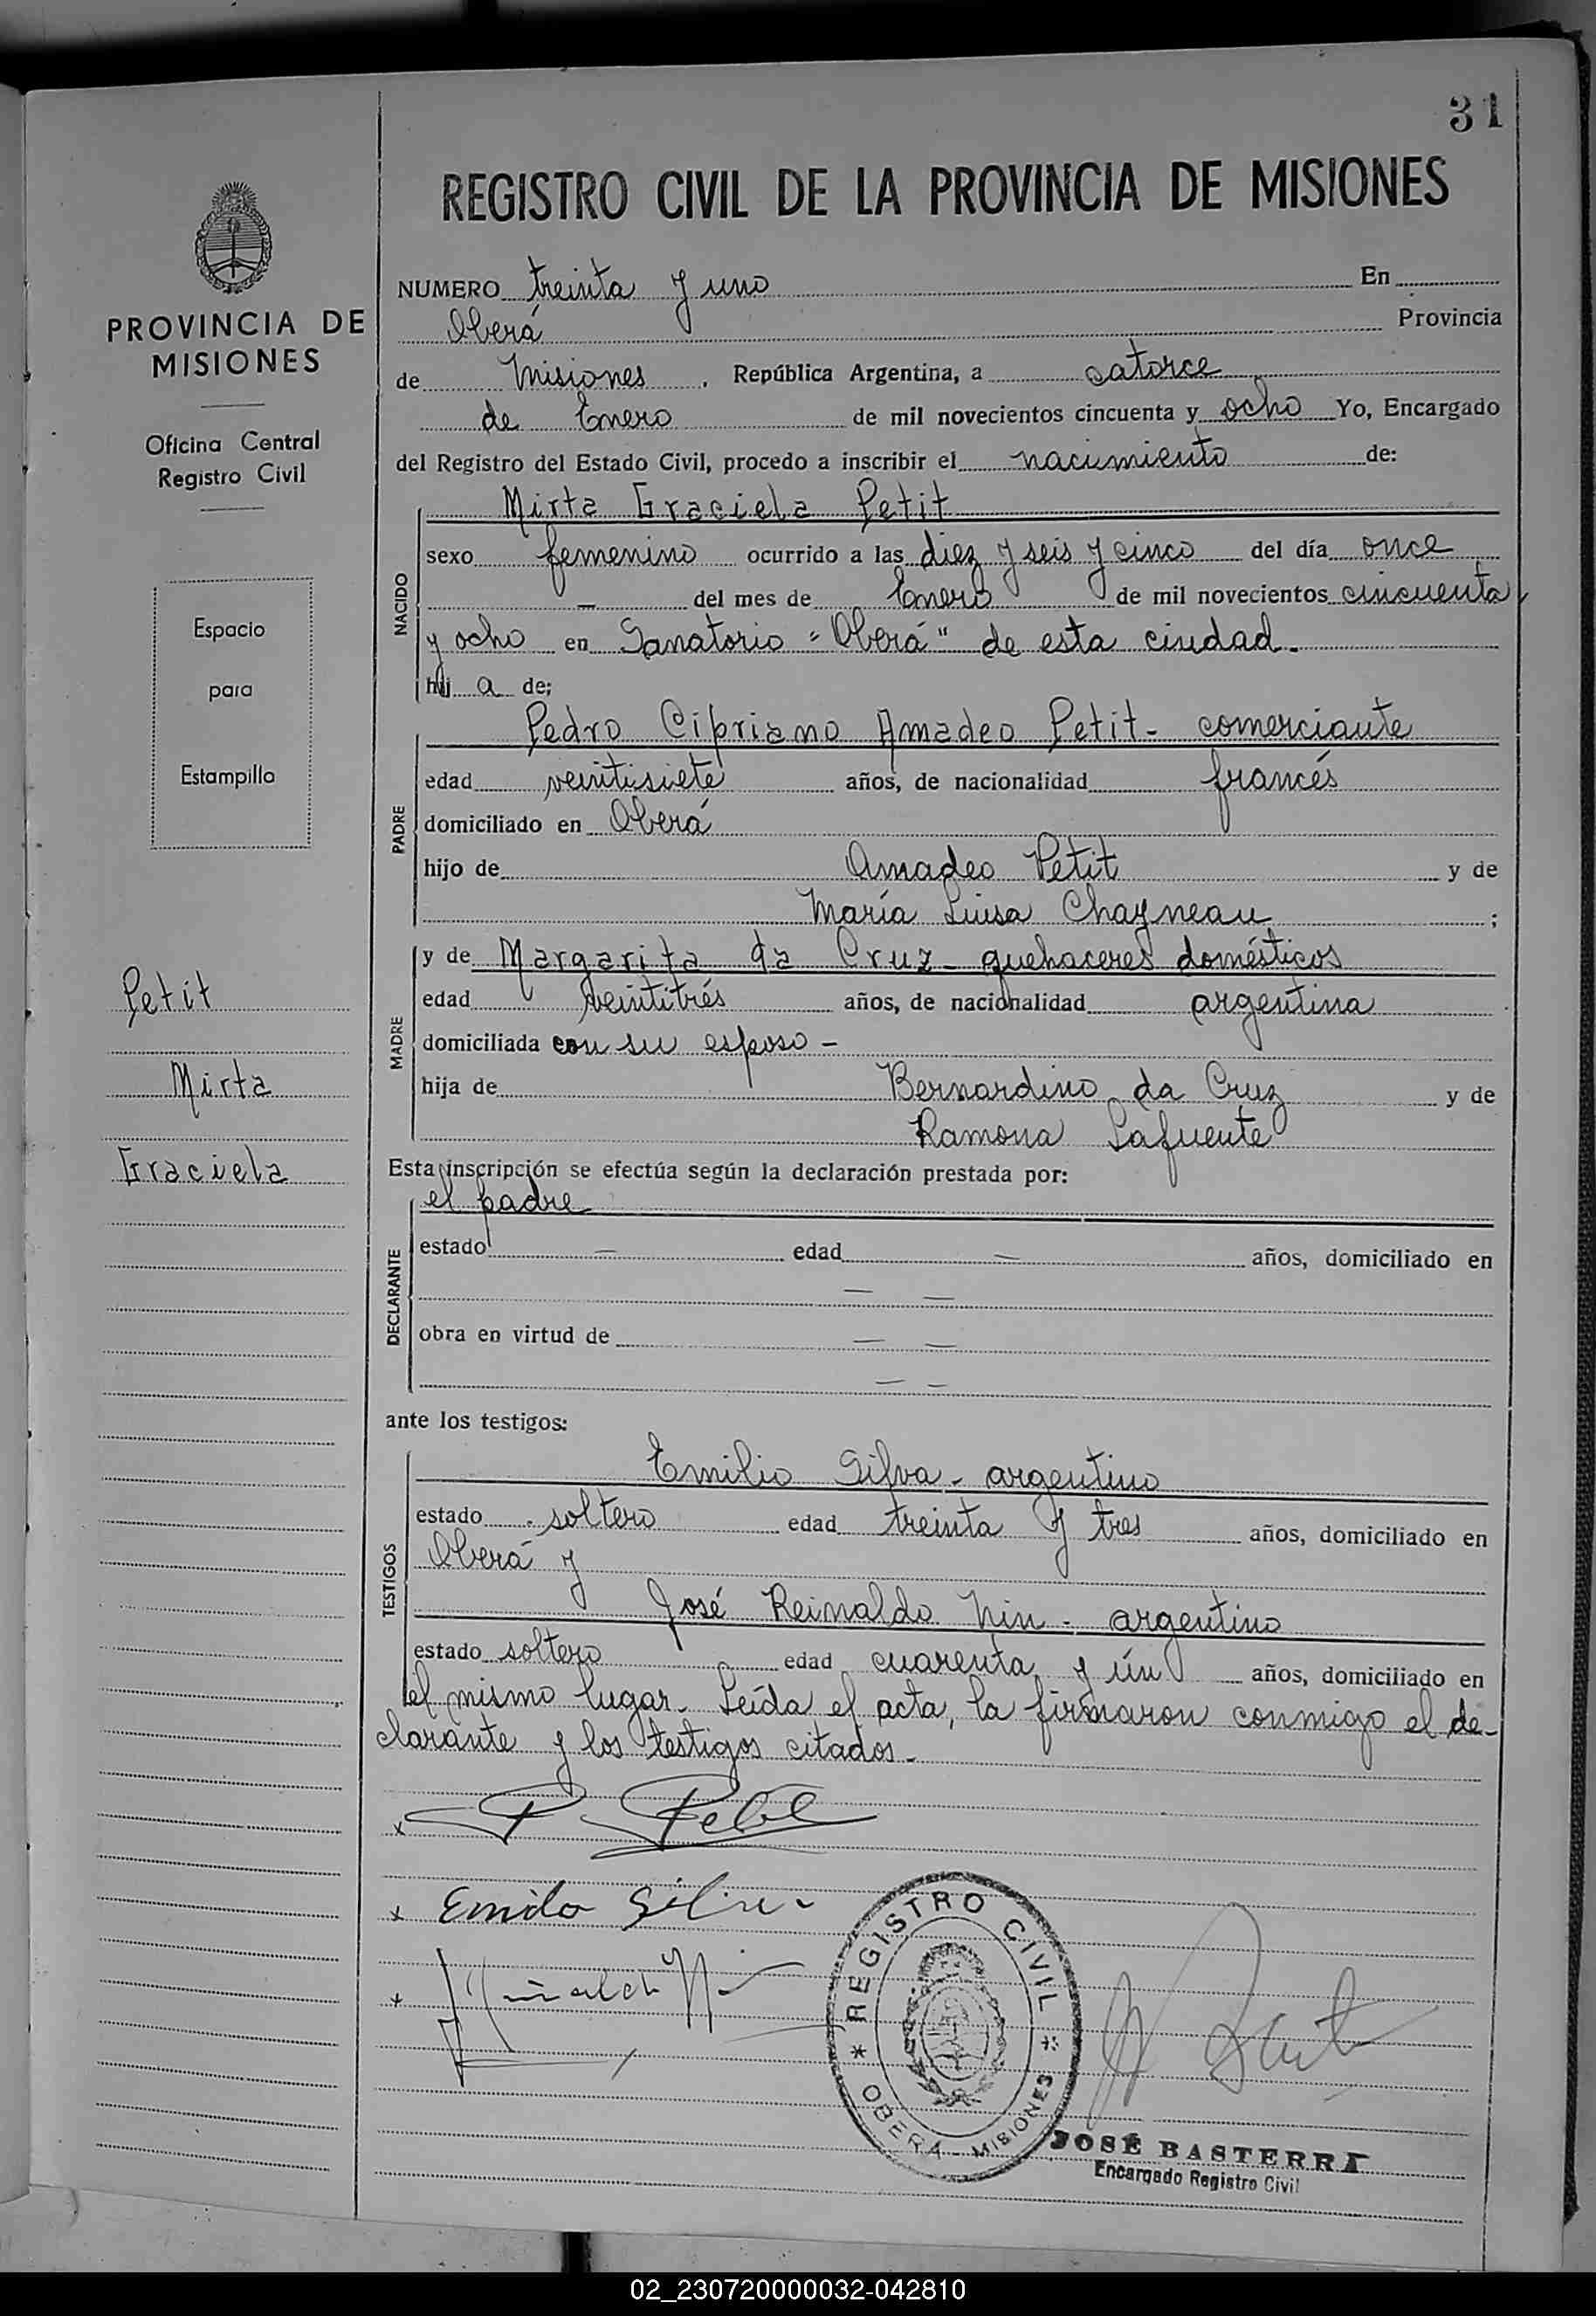 31
REGISTRO CIVIL DE LA PROVINCIA DE MISIONES
PROVINCIA DE
MISIONES
Oficina Central
Registro Civil
Espacio
para
Estampilla
Petit
Mirta
Graciela
NUMERO treinta y uno En
Oberá Provincia
de Misiones, República Argentina, a catorce
de Enero de mil novecientos cincuenta y ocho Yo, Encargado
del Registro del Estado Civil, procedo a inscribir el nacimiento de:
NACIDO
Mirta Graciela Petit
sexo femenino ocurrido a las diez y seis y cinco del día once
— del mes de Enero de mil novecientos cincuenta
y ocho en Sanatorio "Oberá" de esta ciudad.
hij a de;
PADRE
Pedro Cipriano Amadeo Petit - comerciante
edad veintisiete años, de nacionalidad francés
domiciliado en Oberá
hijo de Amadeo Petit y de
María Luisa Chayneau ;
MADRE
y de Margarita da Cruz - quehaceres domésticos
edad veintitrés años, de nacionalidad argentina
domiciliada con su esposo -
hija de Bernardino da Cruz y de
Ramona Lafuente
Esta inscripción se efectúa según la declaración prestada por:
DECLARANTE
el padre
estado — edad — años, domiciliado en
— —
obra en virtud de — —
— —
ante los testigos:
TESTIGOS
Emilio Silva - argentino
estado soltero edad treinta y tres años, domiciliado en
Oberá y
José Reinaldo Nin - argentino
estado soltero edad cuarenta y ún años, domiciliado en
el mismo lugar. Leída el acta, la firmaron conmigo el de-
clarante y los testigos citados.-
x P. Petit
x Emilio Silva
x
REGISTRO CIVIL
* OBERA - MISIONES *
JOSÉ BASTERRA
Encargado Registro Civil
02_230720000032-042810